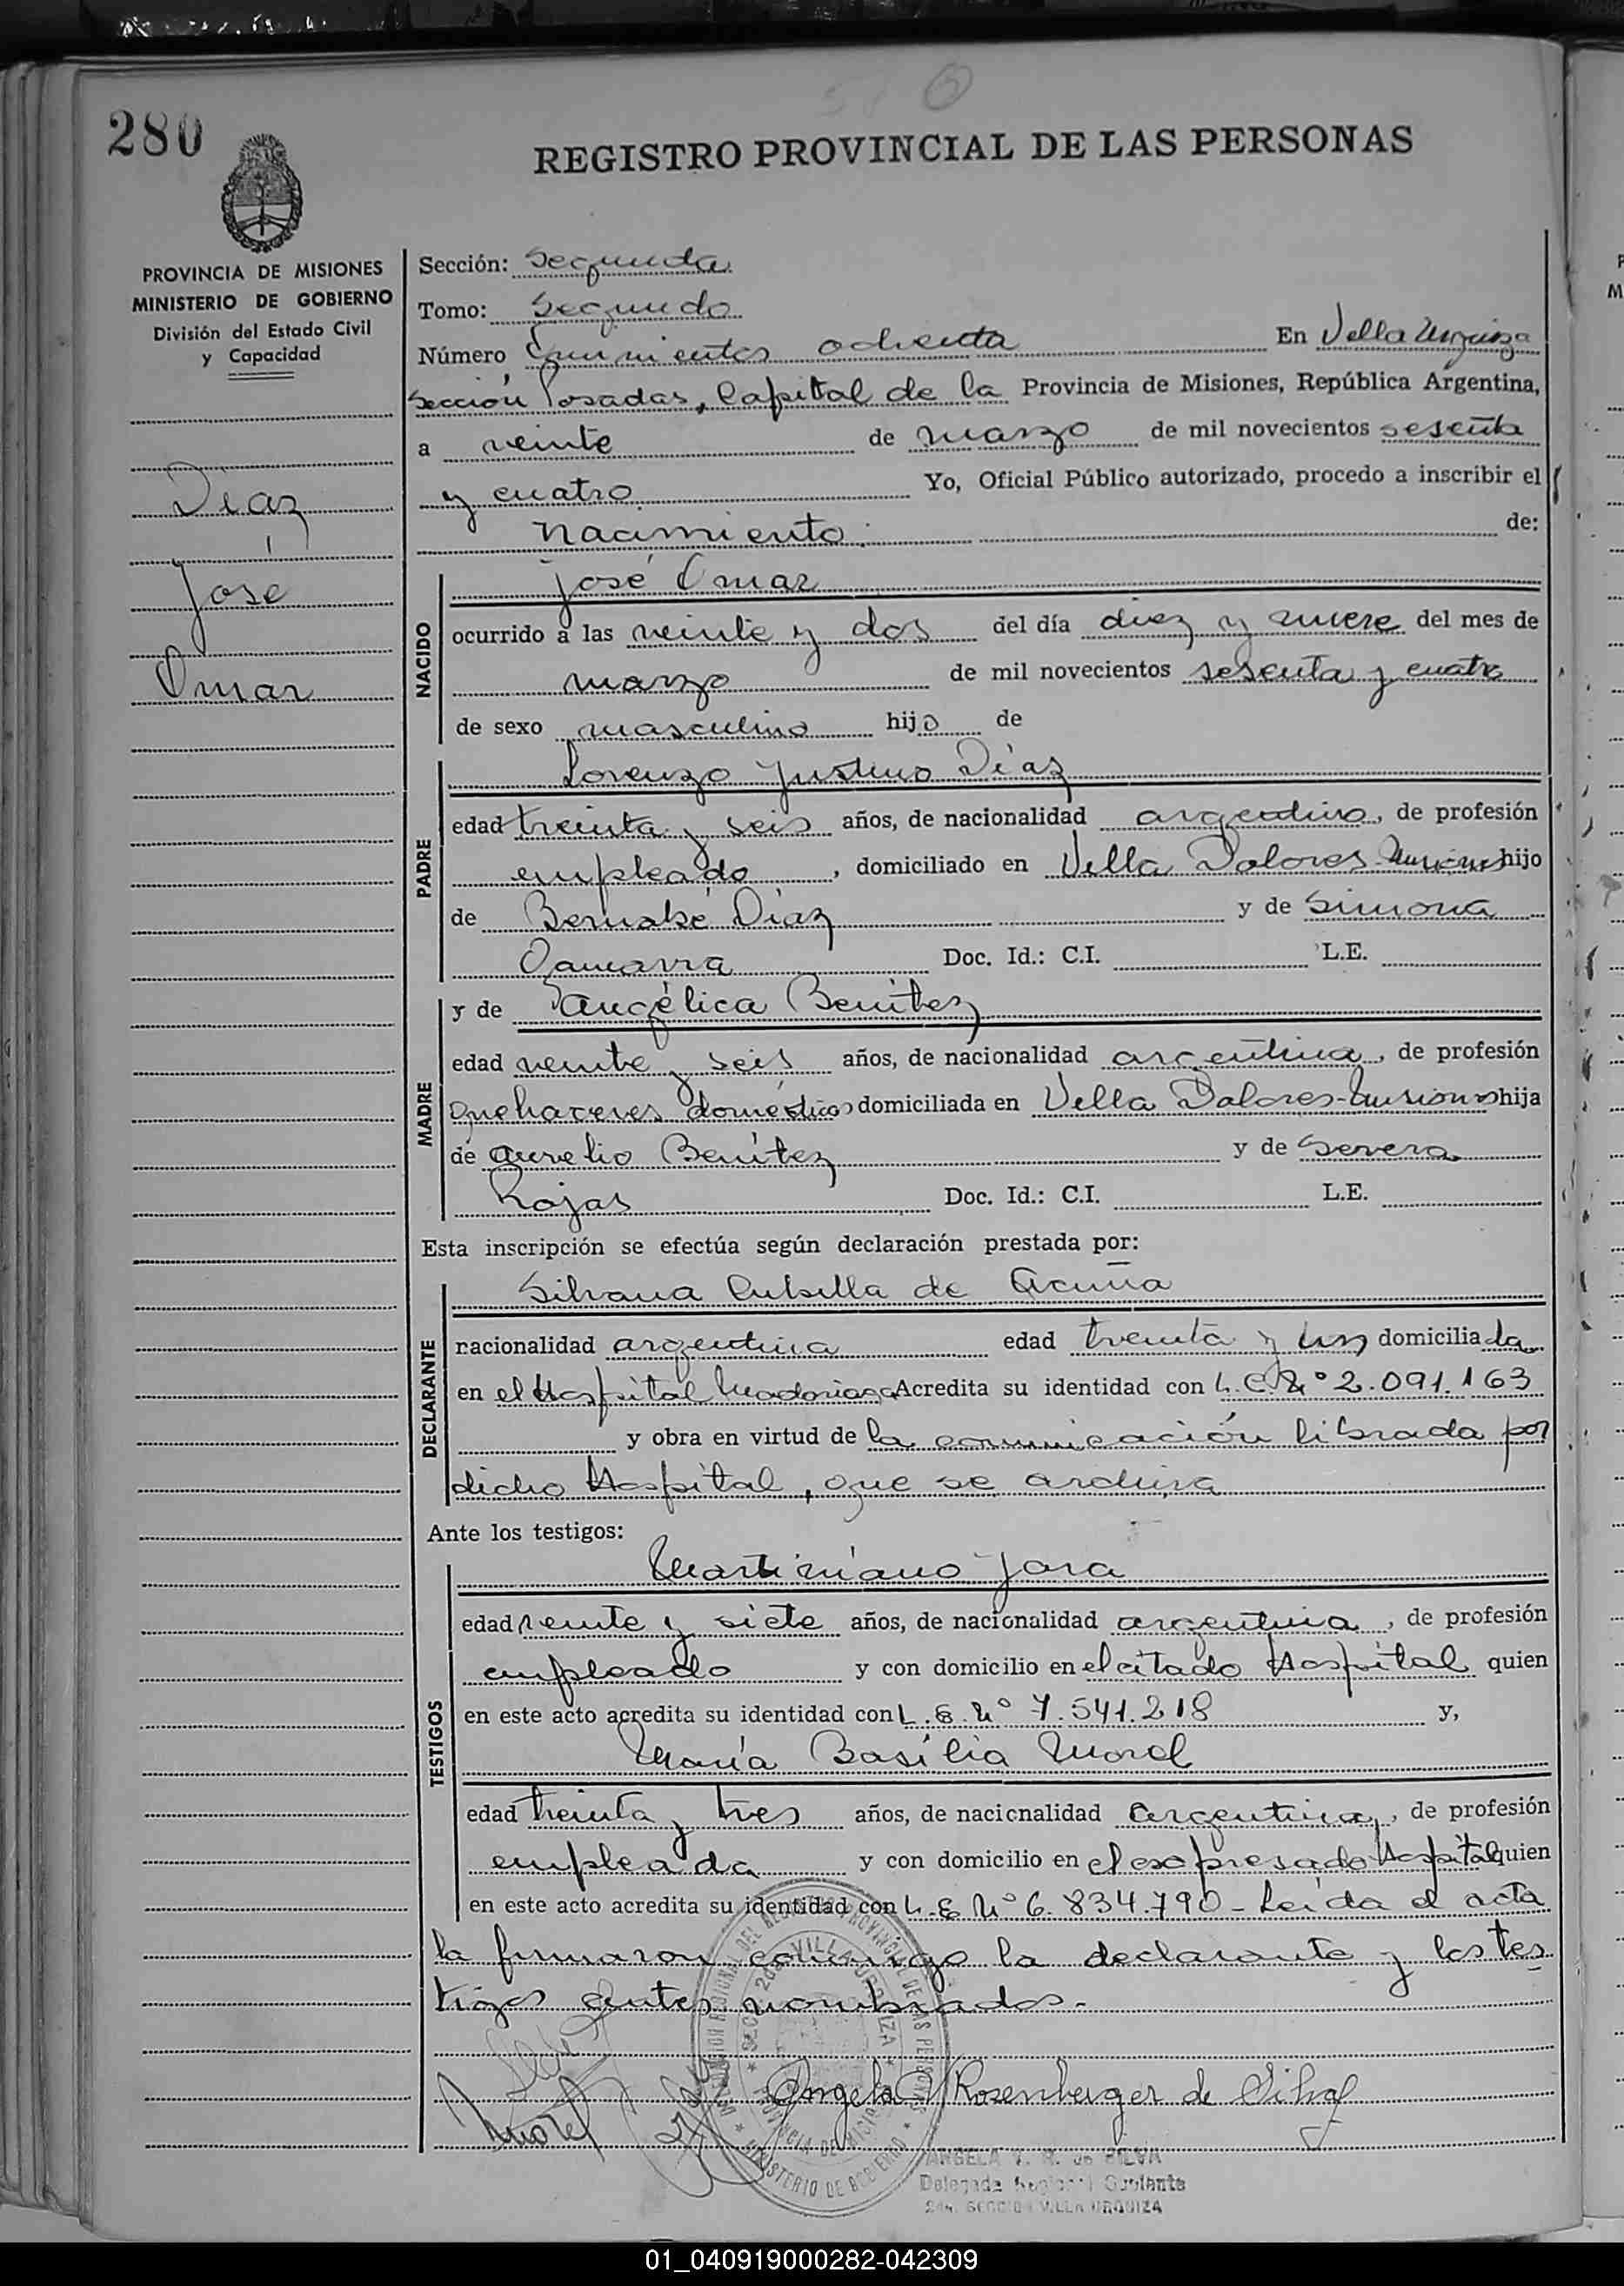 280
REGISTRO PROVINCIAL DE LAS PERSONAS
PROVINCIA DE MISIONES
MINISTERIO DE GOBIERNO
División del Estado Civil
y Capacidad
Díaz
José
Omar
Sección: Segunda
Tomo: Segundo
Número Quinientos ochenta En Villa Urquiza
Sección Posadas, Capital de la Provincia de Misiones, República Argentina,
a veinte de marzo de mil novecientos sesenta
y cuatro Yo, Oficial Público autorizado, procedo a inscribir el
nacimiento de:
NACIDO
José Omar
ocurrido a las veinte y dos del día diez y nueve del mes de
marzo de mil novecientos sesenta y cuatro
de sexo masculino hijo de
PADRE
Lorenzo Justino Díaz
edad treinta y seis años, de nacionalidad argentino, de profesión
empleado, domiciliado en Villa Dolores-Misiones hijo
de Bernabé Díaz y de Simona
Gamarra Doc. Id.: C.I. L.E.
MADRE
y de Angélica Benítez
edad veinte y seis años, de nacionalidad argentina, de profesión
quehaceres domésticos domiciliada en Villa Dolores-Misiones hija
de Aurelio Benítez y de Severa
Rojas Doc. Id.: C.I. L.E.
Esta inscripción se efectúa según declaración prestada por:
DECLARANTE
Silvana Cubilla de Acuña
nacionalidad argentina edad treinta y un domiciliada
en el Hospital Madariaga Acredita su identidad con L.C. Nº 2.091.163
y obra en virtud de la comunicación librada por
dicho Hospital, que se archiva
Ante los testigos:
TESTIGOS
Martiniano Jara
edad veinte y siete años, de nacionalidad argentina, de profesión
empleado y con domicilio en el citado Hospital quien
en este acto acredita su identidad con L.E. Nº 7.541.218 y,
María Basilia Morel
edad treinta y tres años, de nacionalidad argentina, de profesión
empleada y con domicilio en el expresado Hospital quien
en este acto acredita su identidad con L.E. Nº 6.834.790 - Leída el acta
la firmaron conmigo la declarante y los tes
tigos antes nombrados.-
Morel
Angela V Rosenberger de Silva
ANGELA V. R. de SILVA
Delegada Regional Suplente
2da. SECCION VILLA URQUIZA
01_040919000282-042309